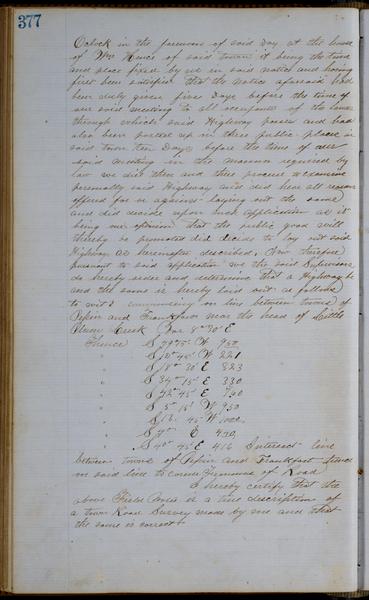 377
Oclock in the forenoon of said day at the house
of Wm of said town it being the time
and place fixed by us in said notice and having
first been satisfied that the notice aforesaid had
been duly given five Days before the time of
our said meeting to all occupants of the lands
through which said Highway passes and had
also been posted up in three public places in
said town ten Days before the time of our
said meeting in the manner required by
law we did then and there proceed to examine
personally said Highway and did hear all reasons
offered for or against laying out the same
and did decide upon such application as it
being our opinion that the public good will
thereby be promoted did decide to lay out said
Highway as hereinafter described, Now therefore
pursuant to said application we the said Supervisors
do hereby order and determine that a Highway be
and the same is hereby laid out as follows
to wit: commencing on line between towns of
Pepin and Frankfort near the head of Little
Plum Creek Var 8° 30' E
Thence S 79° 75' W 950
" S 10° 45' W 221
" S 18° 30' E 823
" S 34° 15' E 330
" S 42° 45' E 760
" S 5° 15' W 450
" S 12 45 W 1000
" S 4° E 430
" S 40° 45' E 416 Intersect line
between towns of Pepin and Frankfort thence
on said line to corner of Road
I hereby certify that the
above Field Notes is a true description of
a town Road Survey made by me and that
the same is correct